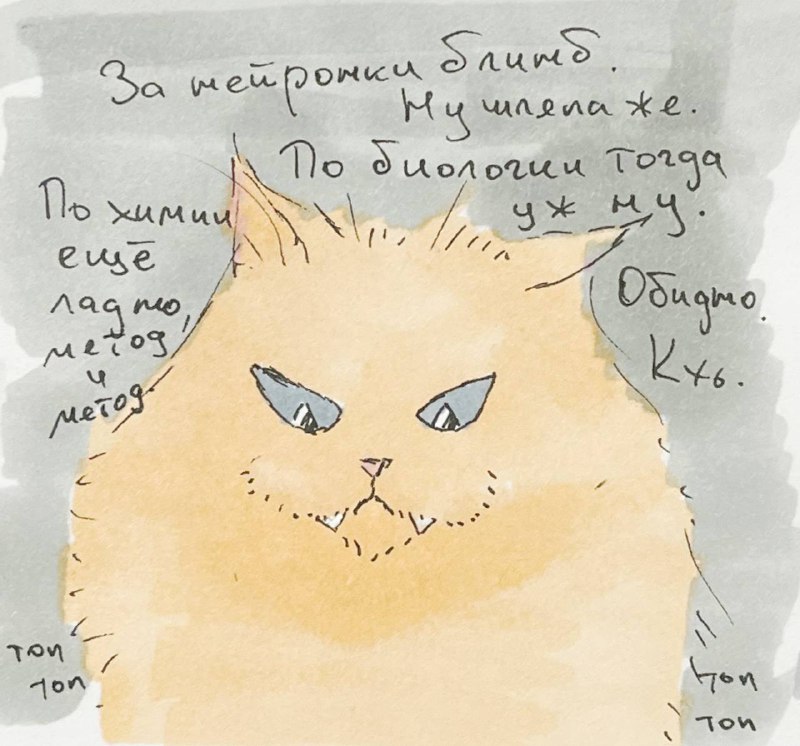 За нейронки блинб.
Ну шляпа же.
По биологии тогда
уж ну.
По химии
ещё
ладно,
метод
и
метод.
Обидно.
Кхь.
топ
топ
топ
топ